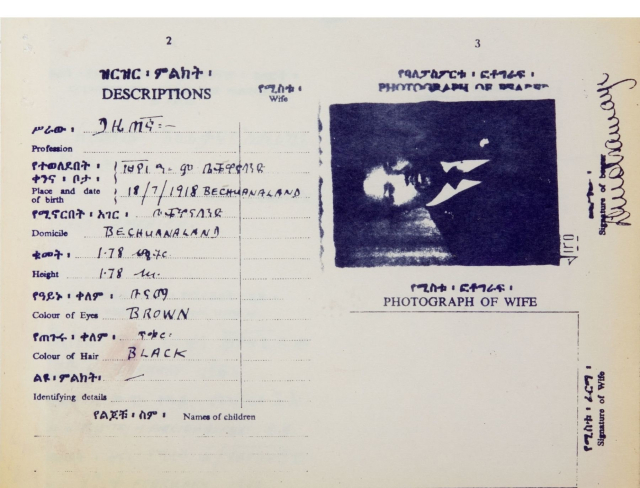 2
3
ዝርዝር ፡ ምልክት ፡
DESCRIPTIONS
የሚስቱ ፡
Wife
ሥራው ፡
Profession
የተወለደበት ፡
ቀንና ፡ ቦታ ፡
Place and date of birth
18/7/1918 BECHUANALAND
የሚኖርበት ፡ አገር ፡
Domicile BECHUANALAND
ቁመት ፡ 1.78
Height 1.78
የዓይኑ ፡ ቀለም ፡
Colour of Eyes BROWN
የጠጉሩ ፡ ቀለም ፡
Colour of Hair BLACK
ልዩ ፡ ምልክት ፡
Identifying details
የልጆቹ ፡ ስም ፡ Names of children
የባለፓስፖርቱ ፡ ፎቶግራፍ ፡
PHOTOGRAPH OF BEARER
Signature of bearer
የሚስቱ ፡ ፎቶግራፍ ፡
PHOTOGRAPH OF WIFE
የሚስቱ ፡ ፊርማ ፡
Signature of Wife